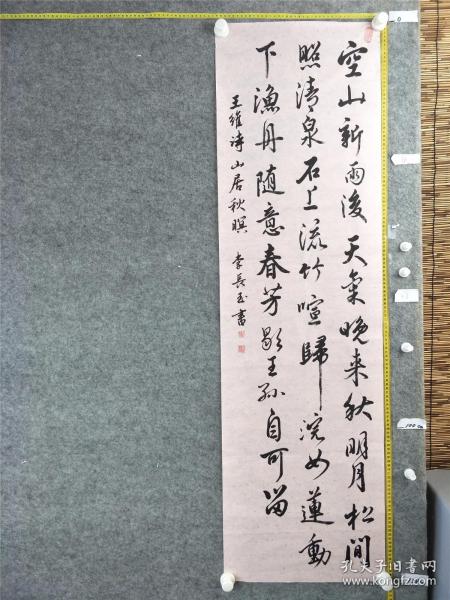 空山新雨後天氣晚来秋明月松間
照清泉石上流竹喧歸浣女蓮動
下漁舟随意春芳歇王孫自可留
王維诗山居秋暝 李長玉書
0
100cm
孔夫子旧书网